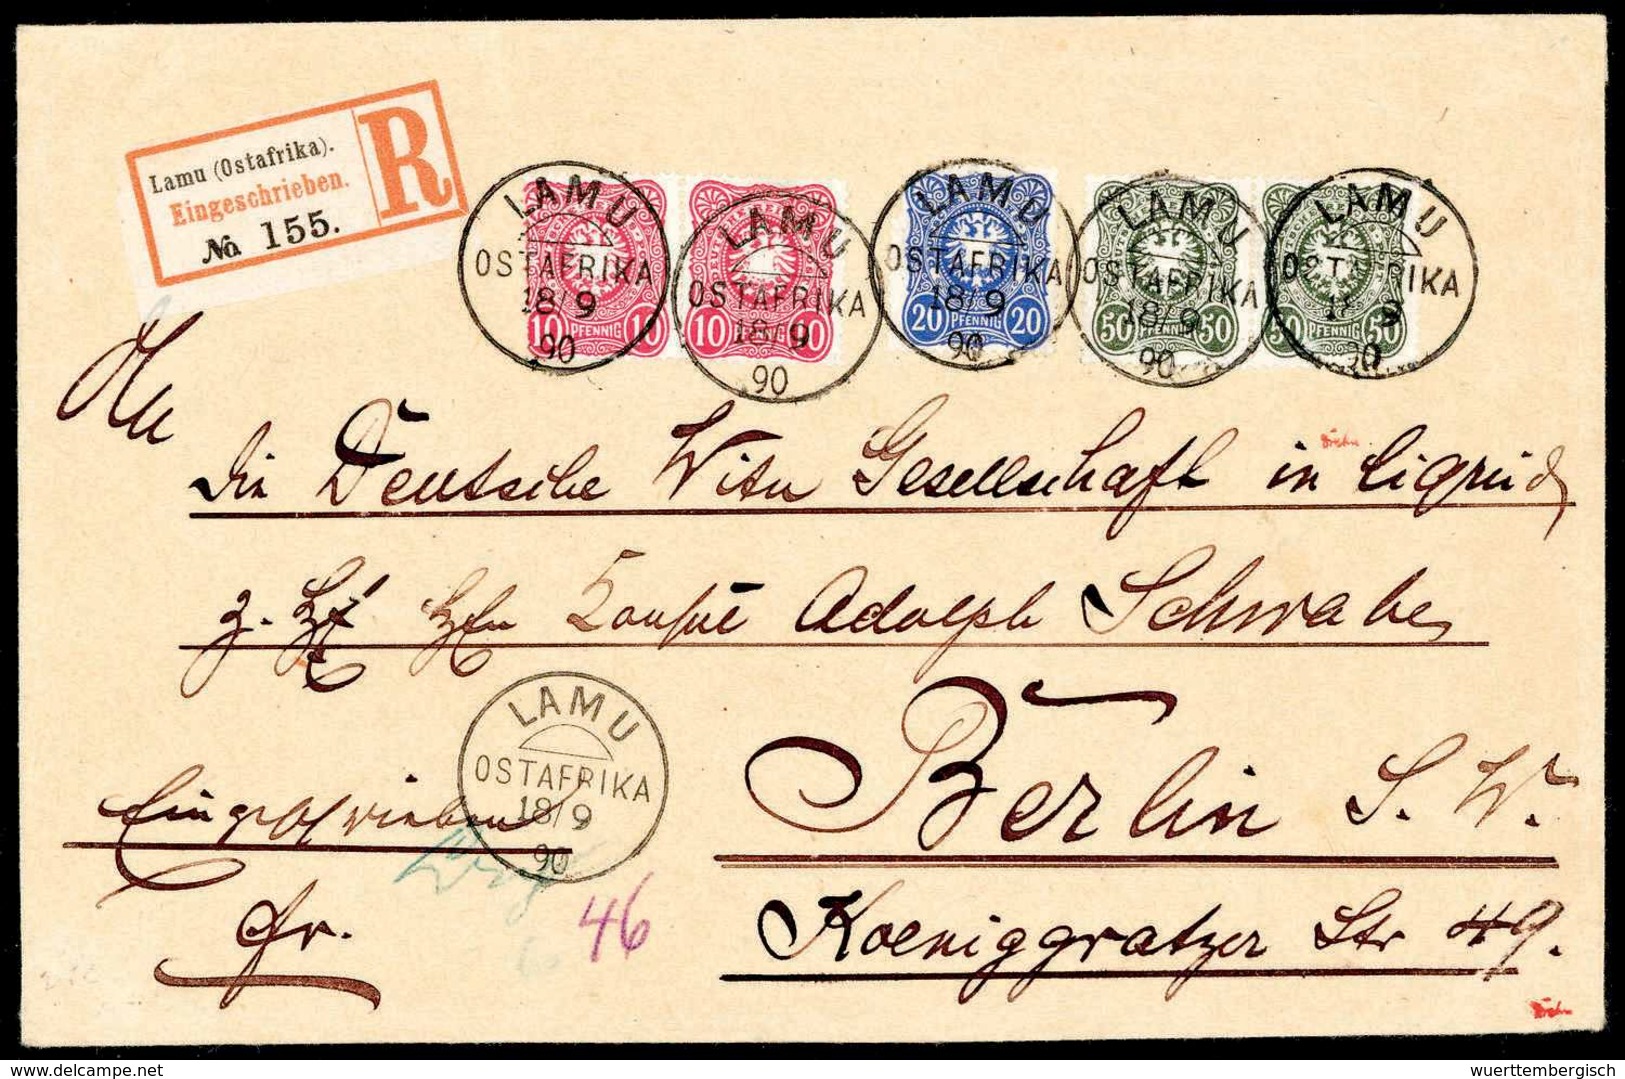 Lamu (Ostafrika).
Eingeschrieben.
No. 155.
R
LAMU
OSTAFRIKA
18/9
90
LAMU
OSTAFRIKA
18/9
90
LAMU
OSTAFRIKA
18/9
90
LAMU
OSTAFRIKA
18/9
90
LAMU
OSTAFRIKA
18/9
90
10 PFENNIG 10
10 PFENNIG 10
20 PFENNIG 20
50 PFENNIG 50
50 PFENNIG 50
An
die Deutsche Witu Gesellschaft in Liquid.
z. Hd. Hrn Konsul Adolph Schwabe,
LAMU
OSTAFRIKA
18/9
90
Berlin S. W.
Eingeschrieben
fr.
46
Koeniggratzer Str 49.
www.delcampe.net
wuerttembergisch